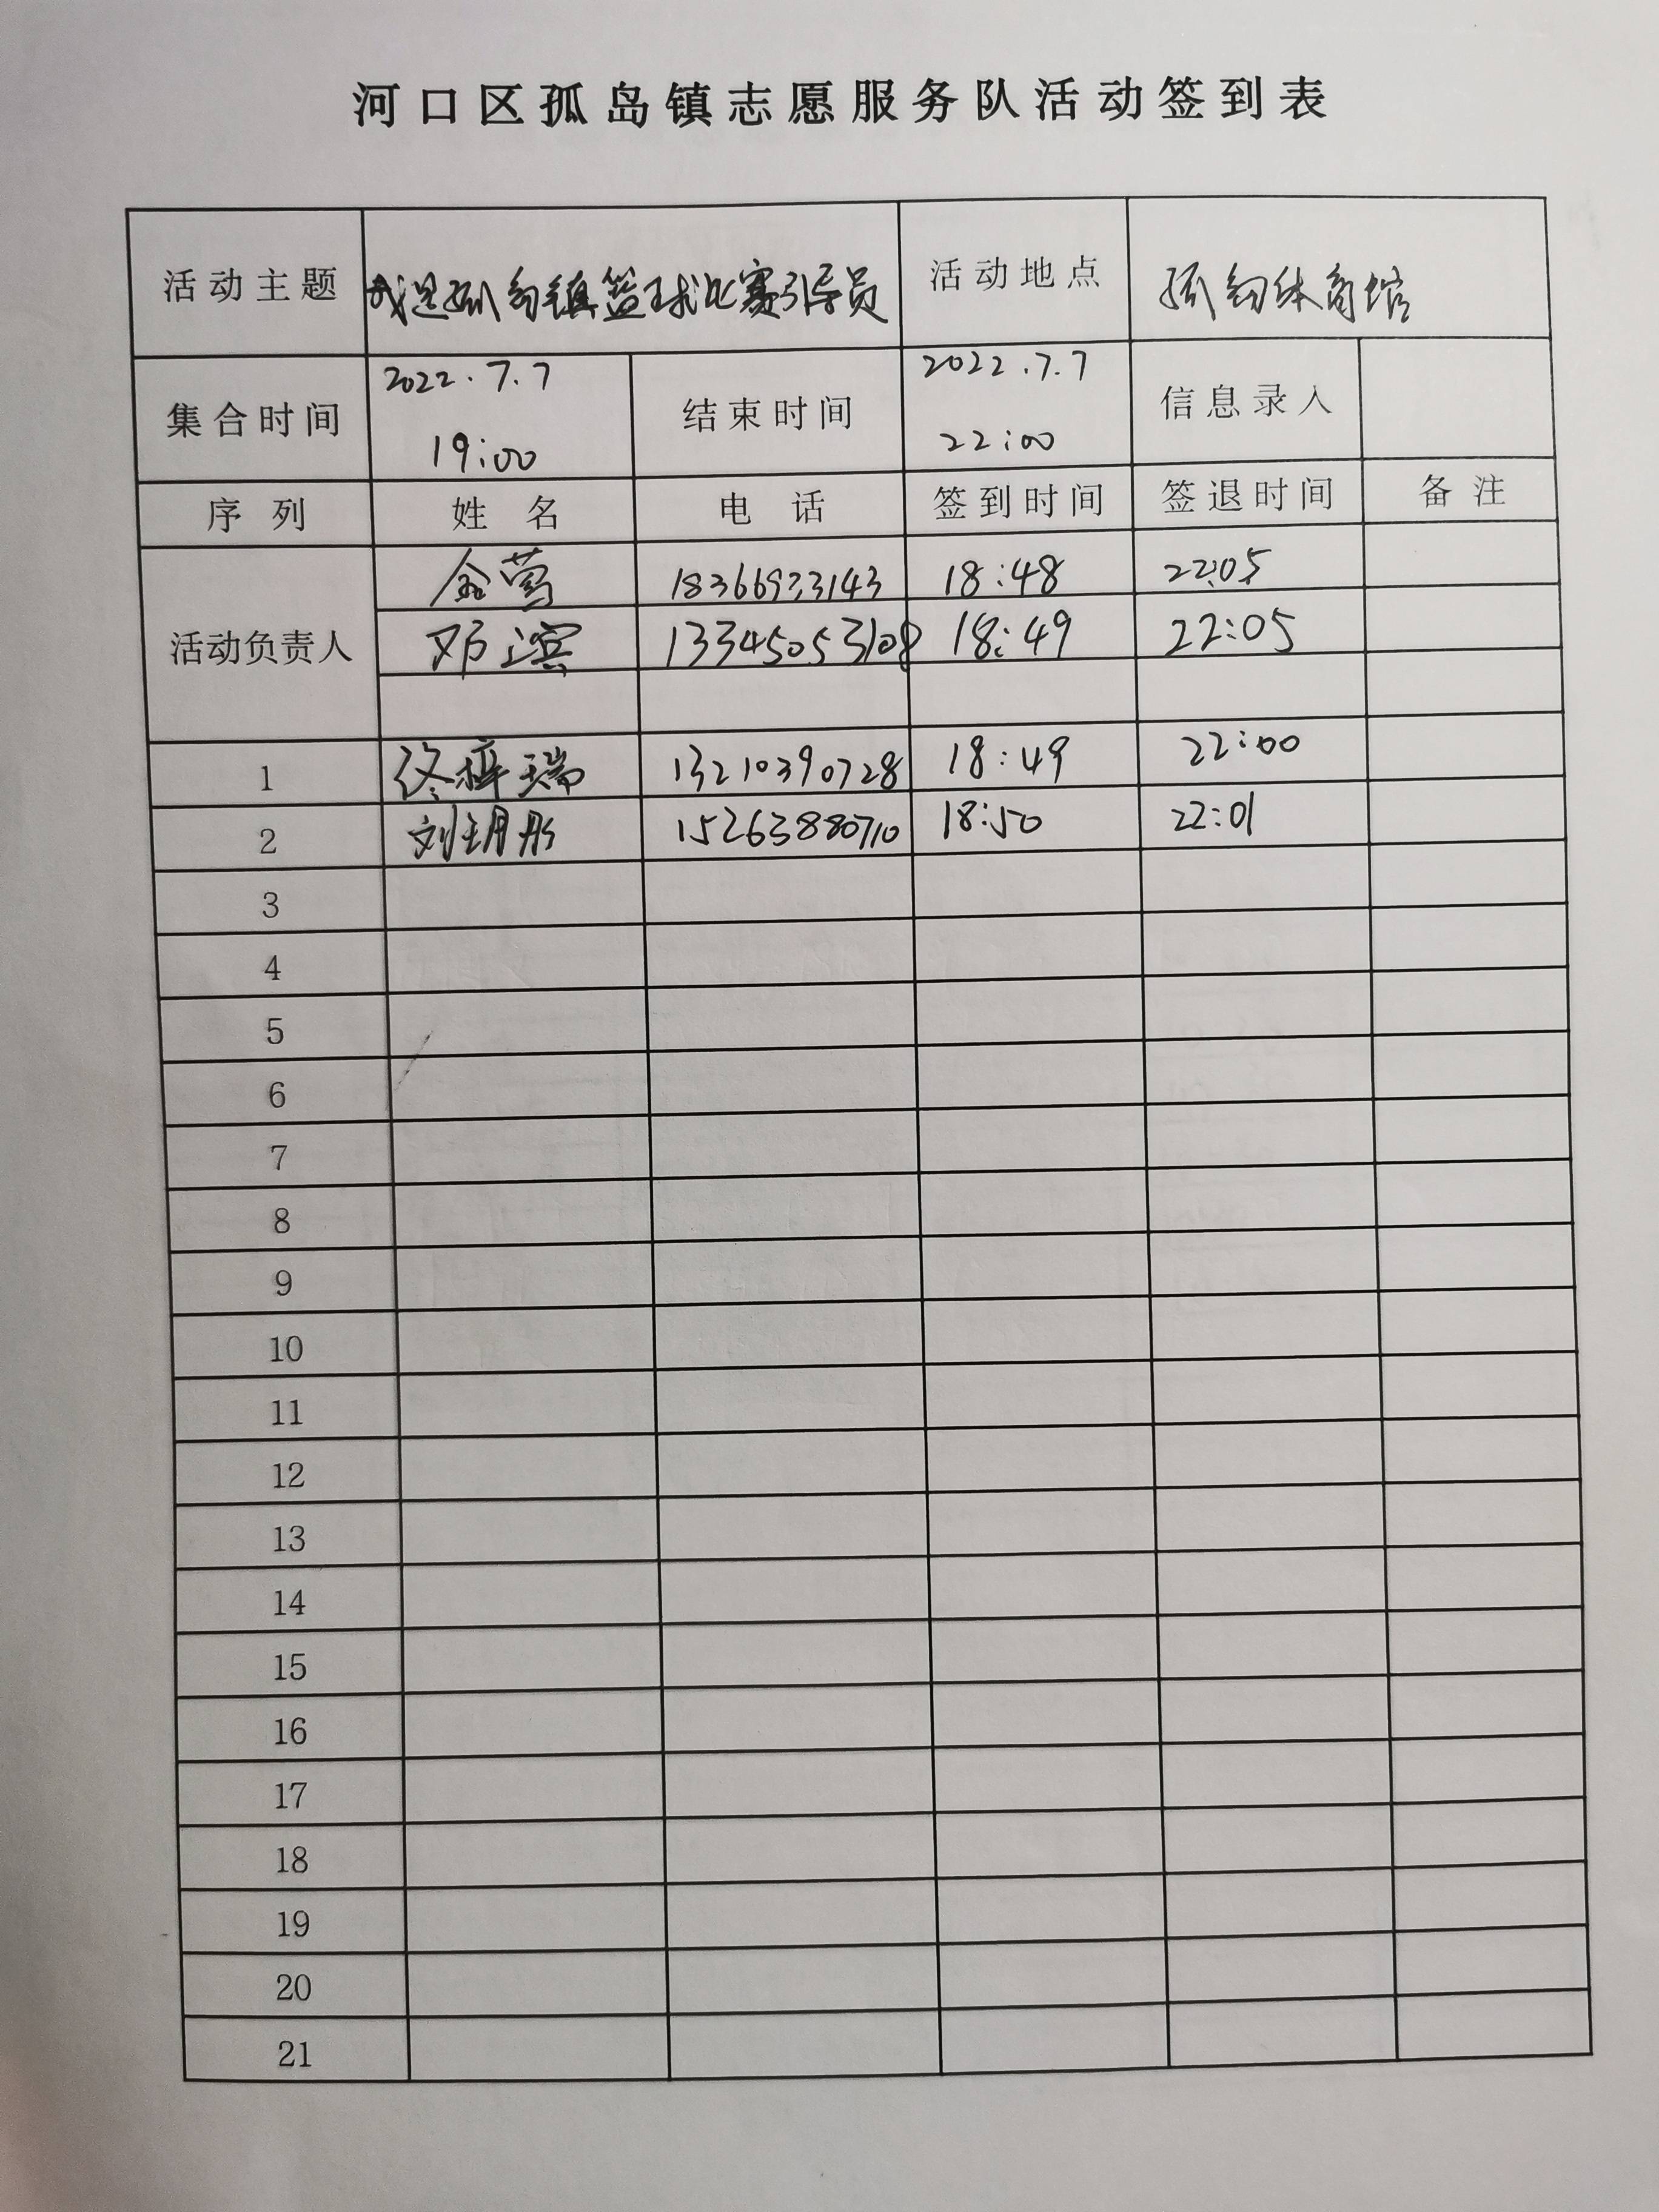 河口区孤岛镇志愿服务队活动签到表
活动主题 我是孤岛镇篮球比赛引导员 活动地点 孤岛体育馆
集合时间 2022.7.7 19:00 结束时间 2022.7.7 22:00 信息录入
序列 姓名 电话 签到时间 签退时间 备注
活动负责人
金莺 18366923143 18:48 22:05
邓滨 13345053108 18:49 22:05
1 佟梓瑞 13210390728 18:49 22:00
2 刘玥彤 15263880710 18:50 22:01
3
4
5
6
7
8
9
10
11
12
13
14
15
16
17
18
19
20
21